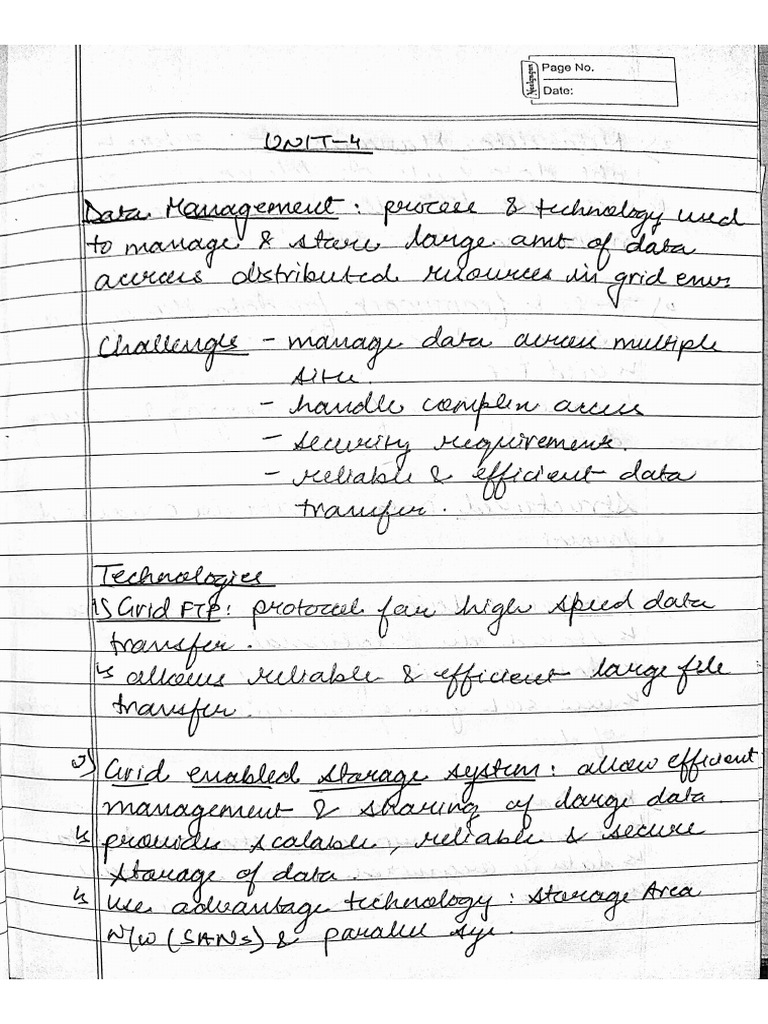 Page No.
Date:
UNIT-4
Data Management : process & technology used
to manage & store large amt of data
across distributed resources in grid env.
Challenges - manage data across multiple
sites.
- handle complex access
- security requirement.
- reliable & efficient data
transfer.
Technologies
1) Grid FTP : protocol for high speed data
transfer.
↳ allows reliable & efficient large file
transfer.
2) Grid enabled storage system : allow efficient
management & sharing of large data.
↳ provides scalable, reliable & secure
storage of data.
↳ use advantage technology : Storage Area
N/W (SANs) & parallel sys.